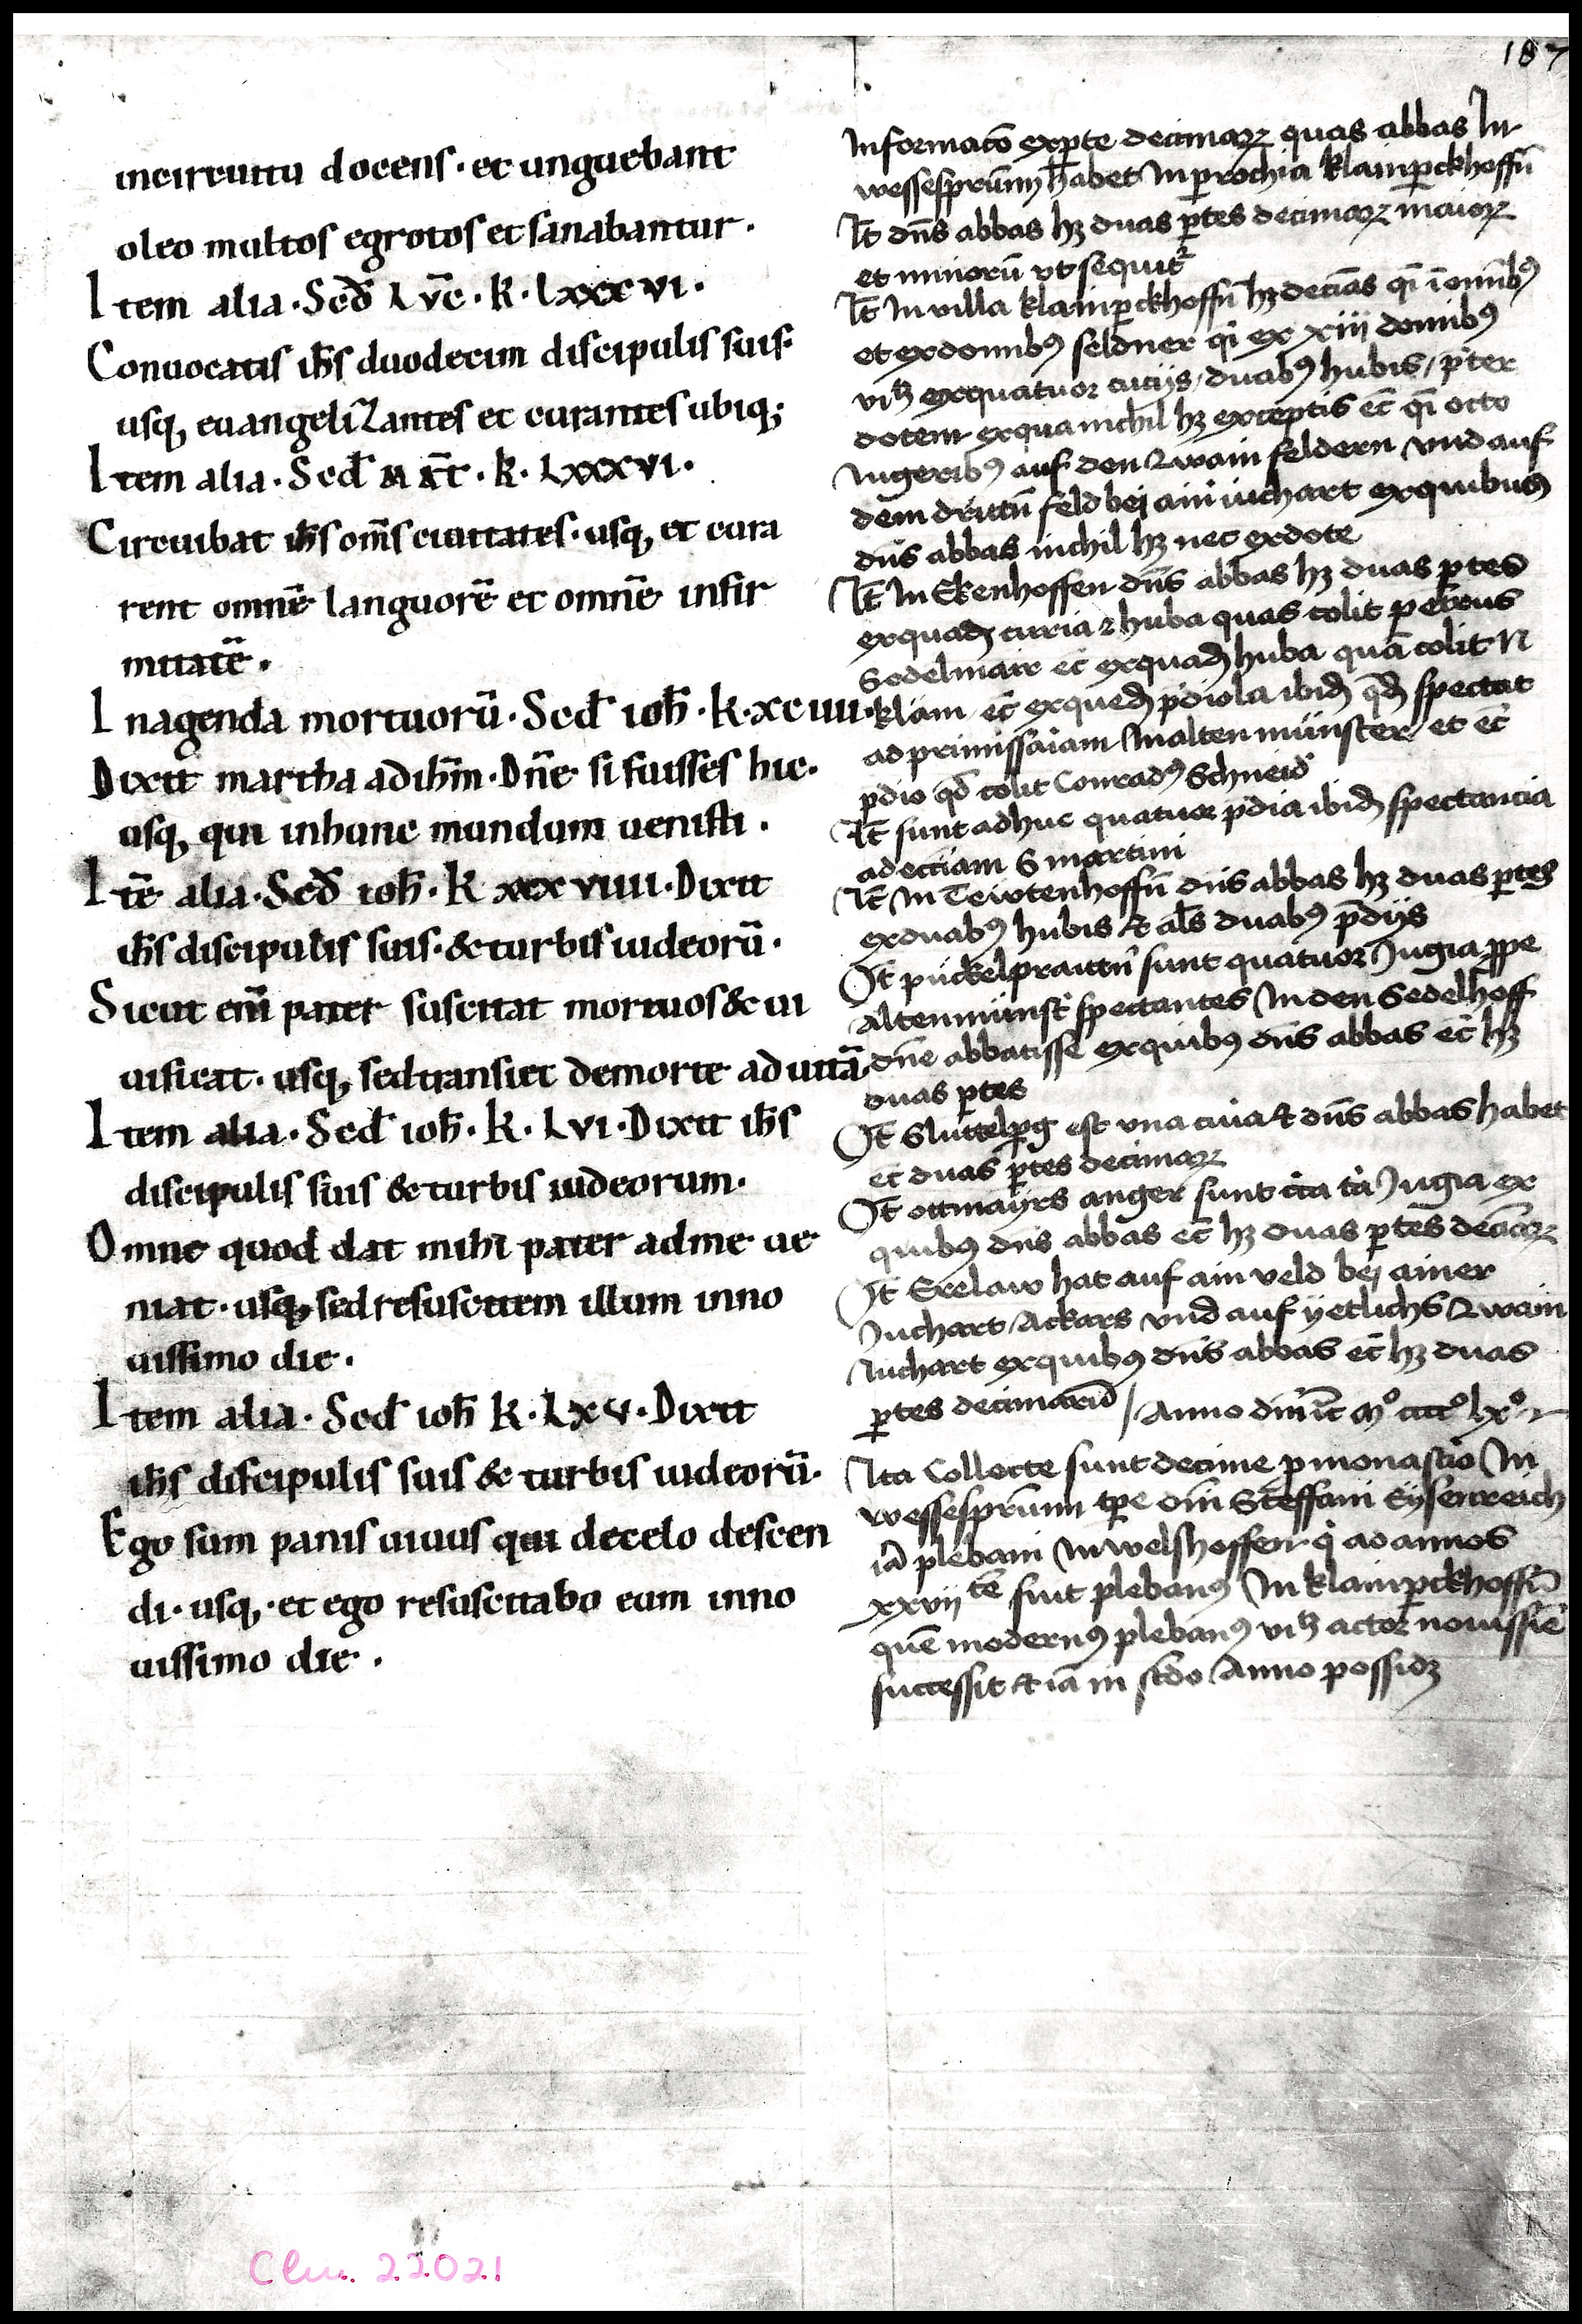 187
incircuitu docens · et unguebant
oleo multos egrotos et sanabantur ·
Item alia · Scđ Lvc̄ · k · Lxxxvi ·
Conuocatis ih̄s duodecim discipulis suis ·
usq; euangelizantes et curantes ubiq;
Item alia · Scđ Mat̄ · k · Lxxxvi ·
Circuibat ih̄s om̄s ciuitates · usq; et cura
rent omnē languorē et omnē infir
mitatē ·
Inagenda mortuorū · Scđ ioh̄ · k · xciiii ·
Dixit martha adih̄m · Dn̄e si fuisses hic ·
usq; qui inhunc mundum uenisti ·
Itē alia · Scđ ioh̄ · k xxxviiii · Dixit
ih̄s discipulis suis · & turbis iudeorū ·
Sicut enī pater suscitat mortuos & ui
uificat · usq; sedtransiet demorte ad uitā ·
Item alia · Scđ ioh̄ · k · Lvi · Dixit ih̄s
discipulis suis & turbis iudeorum ·
Omne quod dat mihi pater adme ue
niat · usq; sed resuscitem illum inno
uissimo die ·
Item alia · Scđ ioh̄ k · Lxv · Dixit
ih̄s discipulis suis & turbis iudeorū ·
Ego sum panis uiuus qui decelo descen
di · usq; · et ego resuscitabo eum inno
uissimo die ·
Informacō exꝑte decimaꝝ quas abbas In
wessesprūnn habet In ꝑrochia klainperckhoffn̄
It̄ dn̄s abbas hꝫ duas ꝑtes decimaꝝ maioꝝ
et minorū vt sequit᷑
It̄ In villa klainperckhoffn̄ hꝫ decīas qī ī om̄ibꝯ
et ex domibꝯ seldner qī ex xiii domibꝯ
vidꝫ exquatuor curijs / duabꝯ hubis / p̄ter
dotem exqua nichil hꝫ exceptis ec̄ qī octo
Iugeribꝯ auf den zwain feldern vnd auf
dem drittn̄ feld bei ain iuchart exquibus
dn̄s abbas nichil hꝫ nec exdote
It̄ In Ekenhoffen dn̄s abbas hꝫ duas ꝑtes
exquadꝫ curia ⁊ huba quas colit petrus
Sedelmair ec̄ exquadꝫ huba quā colit N
klam ec̄ exquedꝫ p̄diola ibidꝫ qd̄ spectat
ad primissariam Inaltenmünster et ec̄
p̄dio qd̄ colit Conradꝯ Schneid᷑
It̄ sunt adhuc quatuor p̄dia ibidꝫ spectancia
ad eccīam S martini
It̄ In Teivtenhoffn̄ dn̄s abbas hꝫ duas ꝑtes
exduabꝯ hubis et al̄s duabꝯ p̄dijs
It̄ püchelpraittn̄ sunt quatuor Iugia ꝓpe
Altenmünst᷑ spectantes In den Sedelhoff
dn̄e abbatisse exquibꝯ dn̄s abbas ec̄ hꝫ
duas ꝑtes
It̄ Sluttelꝑg est vna cuia et dn̄s abbas habet
ec̄ duas ꝑtes decimaꝝ
It̄ ottmayrs anger sunt cīta tīa Iugia ex
quibꝯ dn̄s abbas ec̄ hꝫ duas ꝑtes decīaꝝ
It̄ Seelaw hat auf ain veld bei ainer
Iuchart Ackars vnd auf yetlichs zwain
Iuchart exquibꝯ dn̄s abbas ec̄ hꝫ duas
ꝑtes decimarū / Anno dm̄it̄ mͦ ccccͦ lxͦ
Ita Collecte sunt decime ꝑ monastīo In
wessesprunn tꝑe dn̄i Steffani Eysenreich
iā plebani In welshoffen qͥ ad annos
xxvii te fuit plebanꝯ In klainperckhoffn̄
quē modernꝯ plebanꝯ vidꝫ actor nouissīe
successit et iā in scdo Anno possidꝫ
Clm. 22021